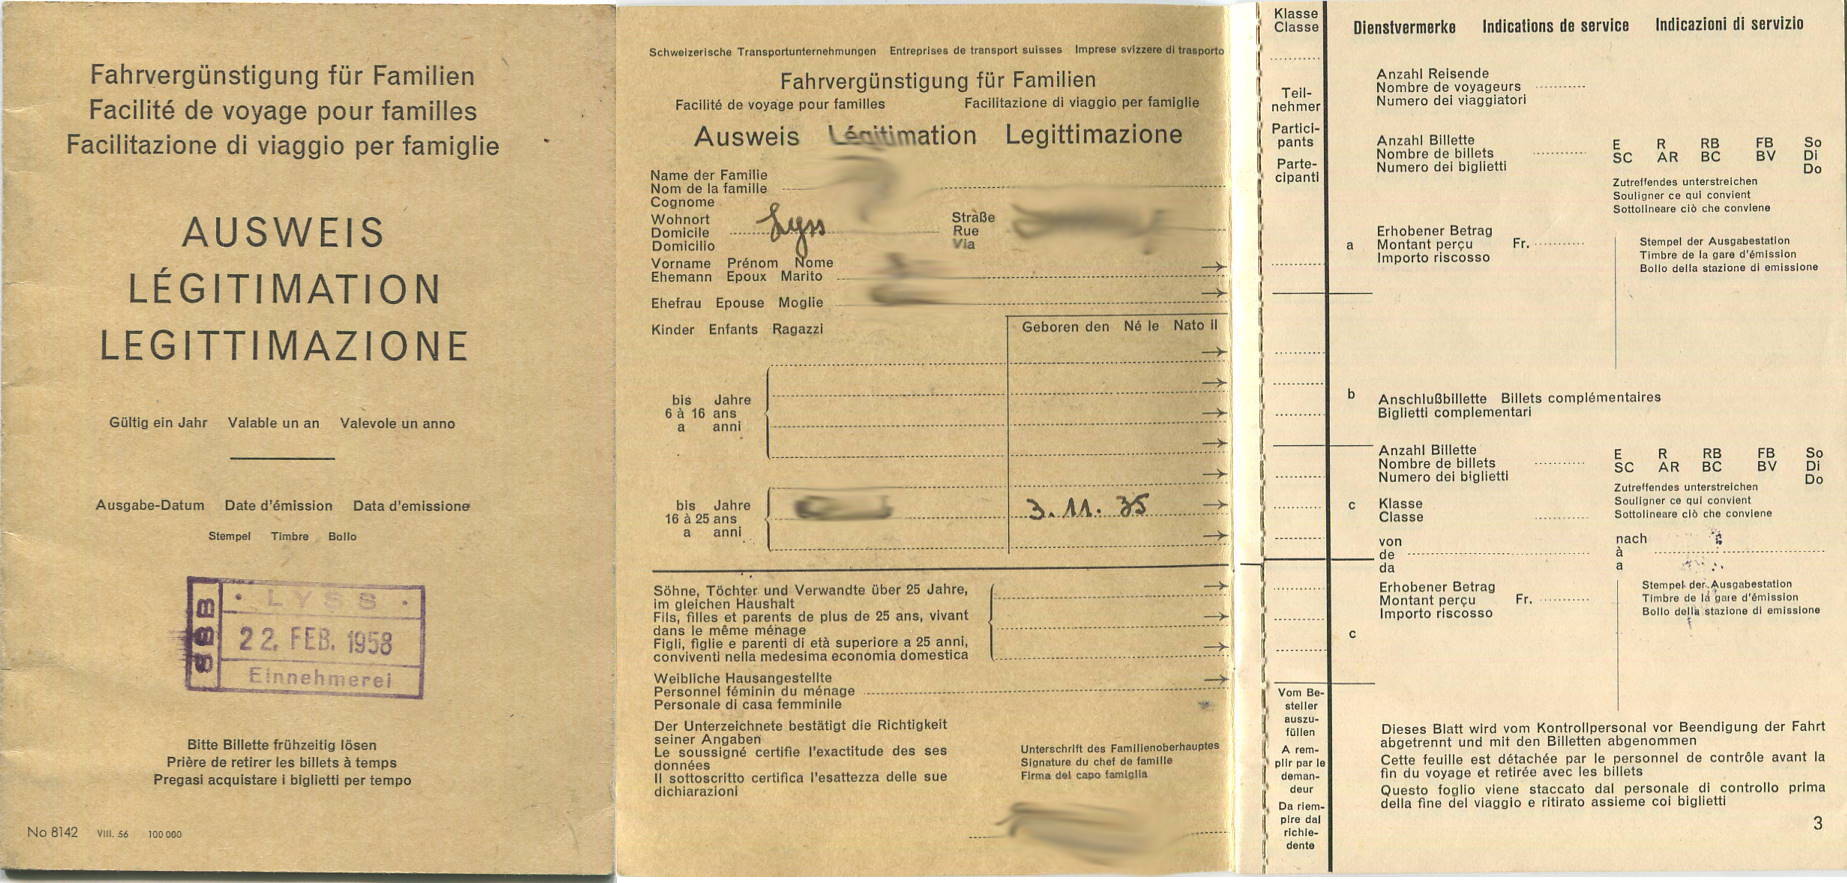 Fahrvergünstigung für Familien
Facilité de voyage pour familles
Facilitazione di viaggio per famiglie
AUSWEIS
LÉGITIMATION
LEGITTIMAZIONE
Gültig ein Jahr Valable un an Valevole un anno
Ausgabe-Datum Date d'émission Data d'emissione
Stempel Timbre Bollo
SBB
LYSS
22. FEB. 1958
Einnehmerei
Bitte Billette frühzeitig lösen
Prière de retirer les billets à temps
Pregasi acquistare i biglietti per tempo
No 8142 VIII. 56 100 000
Schweizerische Transportunternehmungen Entreprises de transport suisses Imprese svizzere di trasporto
Fahrvergünstigung für Familien
Facilité de voyage pour familles Facilitazione di viaggio per famiglie
Ausweis Légitimation Legittimazione
Name der Familie
Nom de la famille
Cognome
Wohnort
Domicile Lyss
Domicilio
Straße
Rue
Via
Vorname Prénom Nome
Ehemann Epoux Marito
Ehefrau Epouse Moglie
Kinder Enfants Ragazzi Geboren den Né le Nato il
bis Jahre
6 à 16 ans
a anni
bis Jahre
16 à 25 ans
a anni
3.11.35
Söhne, Töchter und Verwandte über 25 Jahre,
im gleichen Haushalt
Fils, filles et parents de plus de 25 ans, vivant
dans le même ménage
Figli, figlie e parenti di età superiore a 25 anni,
conviventi nella medesima economia domestica
Weibliche Hausangestellte
Personnel féminin du ménage
Personale di casa femminile
Der Unterzeichnete bestätigt die Richtigkeit
seiner Angaben
Le soussigné certifie l'exactitude des ses
données
Il sottoscritto certifica l'esattezza delle sue
dichiarazioni
Unterschrift des Familienoberhauptes
Signature du chef de famille
Firma del capo famiglia
Klasse
Classe
Teil-
nehmer
Partici-
pants
Parte-
cipanti
Vom Be-
steller
auszu-
füllen
A rem-
plir par le
deman-
deur
Da riem-
pire dal
richie-
dente
Dienstvermerke Indications de service Indicazioni di servizio
Anzahl Reisende
Nombre de voyageurs
Numero dei viaggiatori
Anzahl Billette
Nombre de billets
Numero dei biglietti
E R RB FB So
SC AR BC BV Di
Do
Zutreffendes unterstreichen
Souligner ce qui convient
Sottolineare ciò che conviene
a
Erhobener Betrag
Montant perçu Fr.
Importo riscosso
Stempel der Ausgabestation
Timbre de la gare d'émission
Bollo della stazione di emissione
b
Anschlußbillette Billets complémentaires
Biglietti complementari
Anzahl Billette
Nombre de billets
Numero dei biglietti
E R RB FB So
SC AR BC BV Di
Do
Zutreffendes unterstreichen
Souligner ce qui convient
Sottolineare ciò che conviene
c
Klasse
Classe
von
de
da
nach
à
a
Erhobener Betrag
Montant perçu Fr.
Importo riscosso
Stempel der Ausgabestation
Timbre de la gare d'émission
Bollo della stazione di emissione
c
Dieses Blatt wird vom Kontrollpersonal vor Beendigung der Fahrt
abgetrennt und mit den Billetten abgenommen
Cette feuille est détachée par le personnel de contrôle avant la
fin du voyage et retirée avec les billets
Questo foglio viene staccato dal personale di controllo prima
della fine del viaggio e ritirato assieme coi biglietti
3